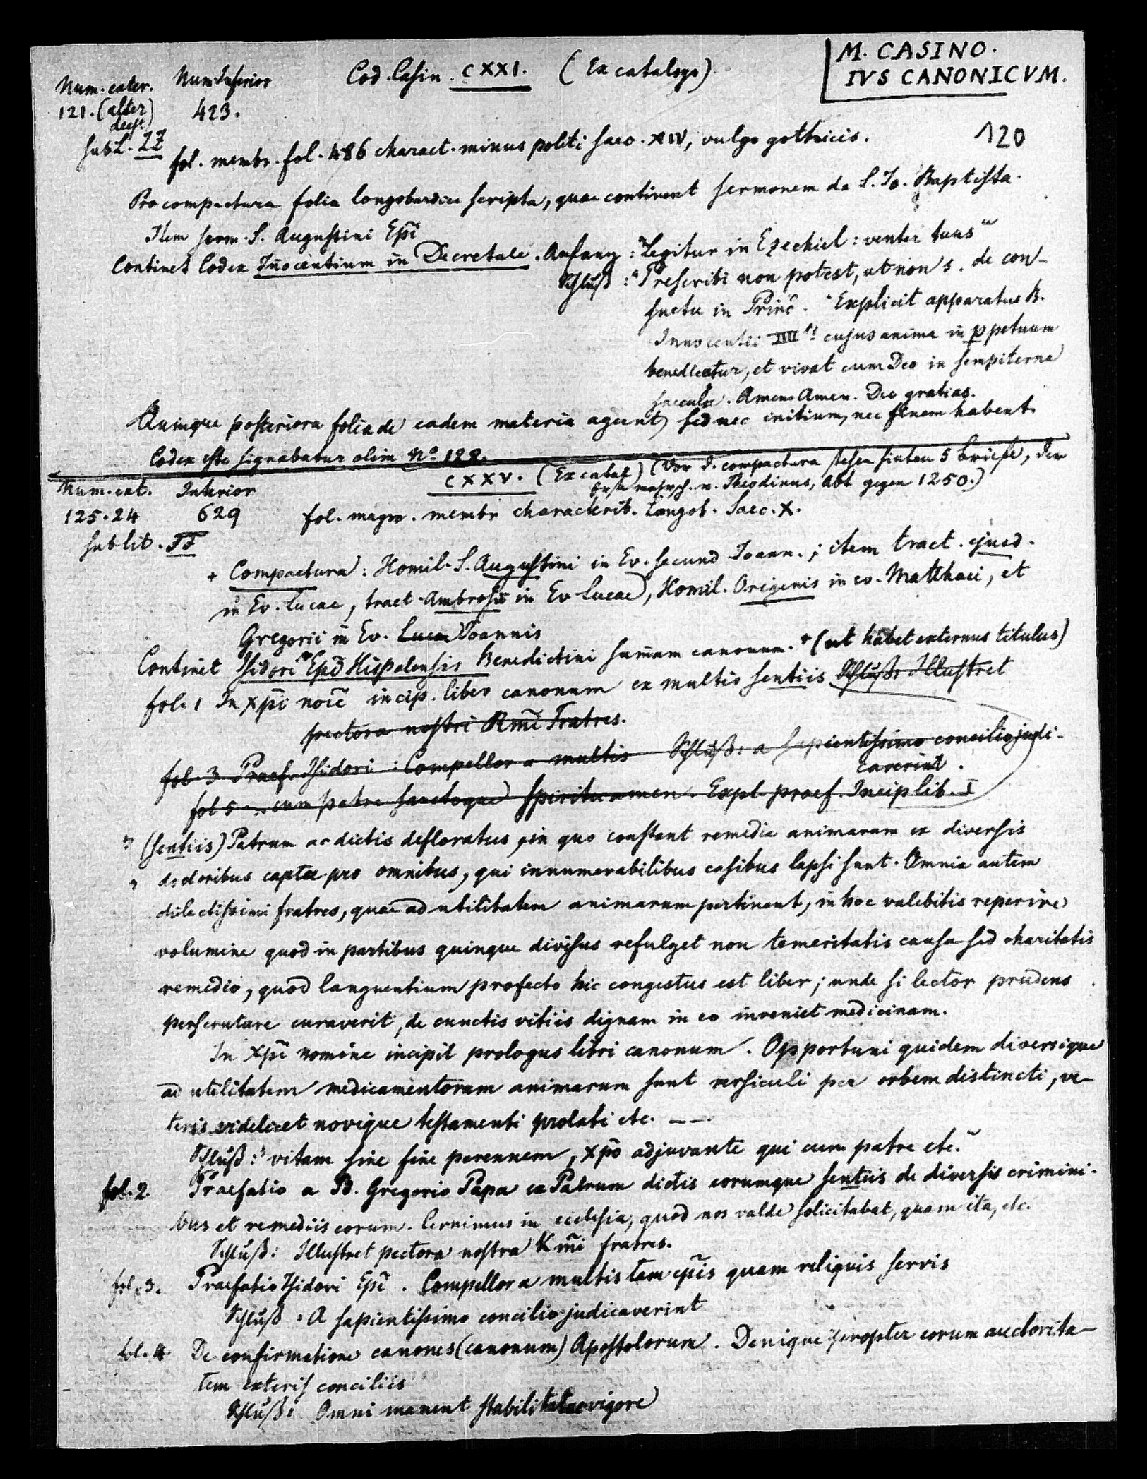 M. CASINO.
IVS CANONICVM.
Num. exter. Num. Inferior Cod. Casin. CXXI. (Ex catalogo)
121. (alter 423.
deest)
sub L. ZZ
120
fol. membr. fol. 486 charact. minus politi saec. XIV, vulgo gothicis.
Pro compactura folia longobardice scripta, quae continent sermonem de S. Jo. Baptista.
Item serm. S. Augustini Epi
Continet Codex Innocentium in Decretale. Anfang: "Legitur in Ezechiel: venter tuus"
Schluß: "Prescribi non potest, ut non s. de con-
suetu in Princ. "Explicit apparatus B.
Innocentii IIII ti cujus anima in ppetuum
benedicatur, et vivat cum Deo in sempiterna
saecula. Amen Amen. Deo gratias.
Quinque posteriora folia de eadem materia agunt, sed nec initium, nec finem habent.
Codex iste signabatur olim No 122.
Num. ext. Interior CXXV. (Ex catal) (Vor d. compactura stehen hinten 5 briefe, der
erste v. Theodinus, Abt gegen 1250.)
125. 24 629 fol. magn. membr charackrib. Langob. Saec. X.
sub lit. TT
+ Compactura: Homil. S. Augustini in Ev. secund Joann.; item tract. ejusd.
in Ev. Lucae, tract. Ambrosii in Ev Lucae, Homil. Origenis in ev. Matthaei, et
Gregorii in Ev. Lucae Joannis
Continet Isidori Epi Hispalensis Benedictini sumam canonum. + (ut habet externus titulus)
fol. 1 In xpi noie incip. liber canonum ex multis sentiis Schluß: Illustret
pectora nostri Kmi Fratres.
fol. 3 Praef. Isidori: Compellor a multis Schluß: a sapientissimo concilio judi-
caverint.
fol 5 cum patre sanctoque spiritu amen. Expl. praef. Incip lib. I
(sentiis) Patrum ac dictis defloratus, in quo constant remedia animarum ex diversis
doctoribus captae pro omnibus, qui innumerabilibus casibus lapsi sunt. Omnia autem
dilectissimi fratres, quae ad utilitatem animarum pertinent, in hoc valebitis reperire
volumine quod in partibus quinque divisus refulget non temeritatis causa sed charitatis
remedio, quod languentium profecto hic congestus est liber; unde si lector prudens
perscrutare curaverit, de cunctis vitiis dignam in eo inveniet medicinam.
In xpi nomine incipit prologus libri canonum. Opportuni quidem diversique
ad utilitatem medicamentorum animarum sunt versiculi per orbem distincti, ve-
teris videlicet novique testamenti prolati etc. — —.
Schluß: "vitam sine fine perennem, xpo adjuvante qui cum patre etc."
fol. 2 Praefatio a Bd. Gregorio Papa ex Patrum dictis eorumque sentiis de diversis crimini-
bus et remediis eorum. Cernimus in ecclesia, quod nos valde solicitabat, quam ita, etc.
Schluß: Illustret pectora nostra Kmi fratres.
fol. 3. Praefatio Isidori Epi. Compellor a multis tam epis quam reliquis servis
Schluß: A sapientissimo concilio judicaverint
fol. 4 De confirmatione canones (canonum) Apostolorum. Denique propter eorum auctorita-
tem exteris conciliis
Schluß: Omni manent stabilitate vigore